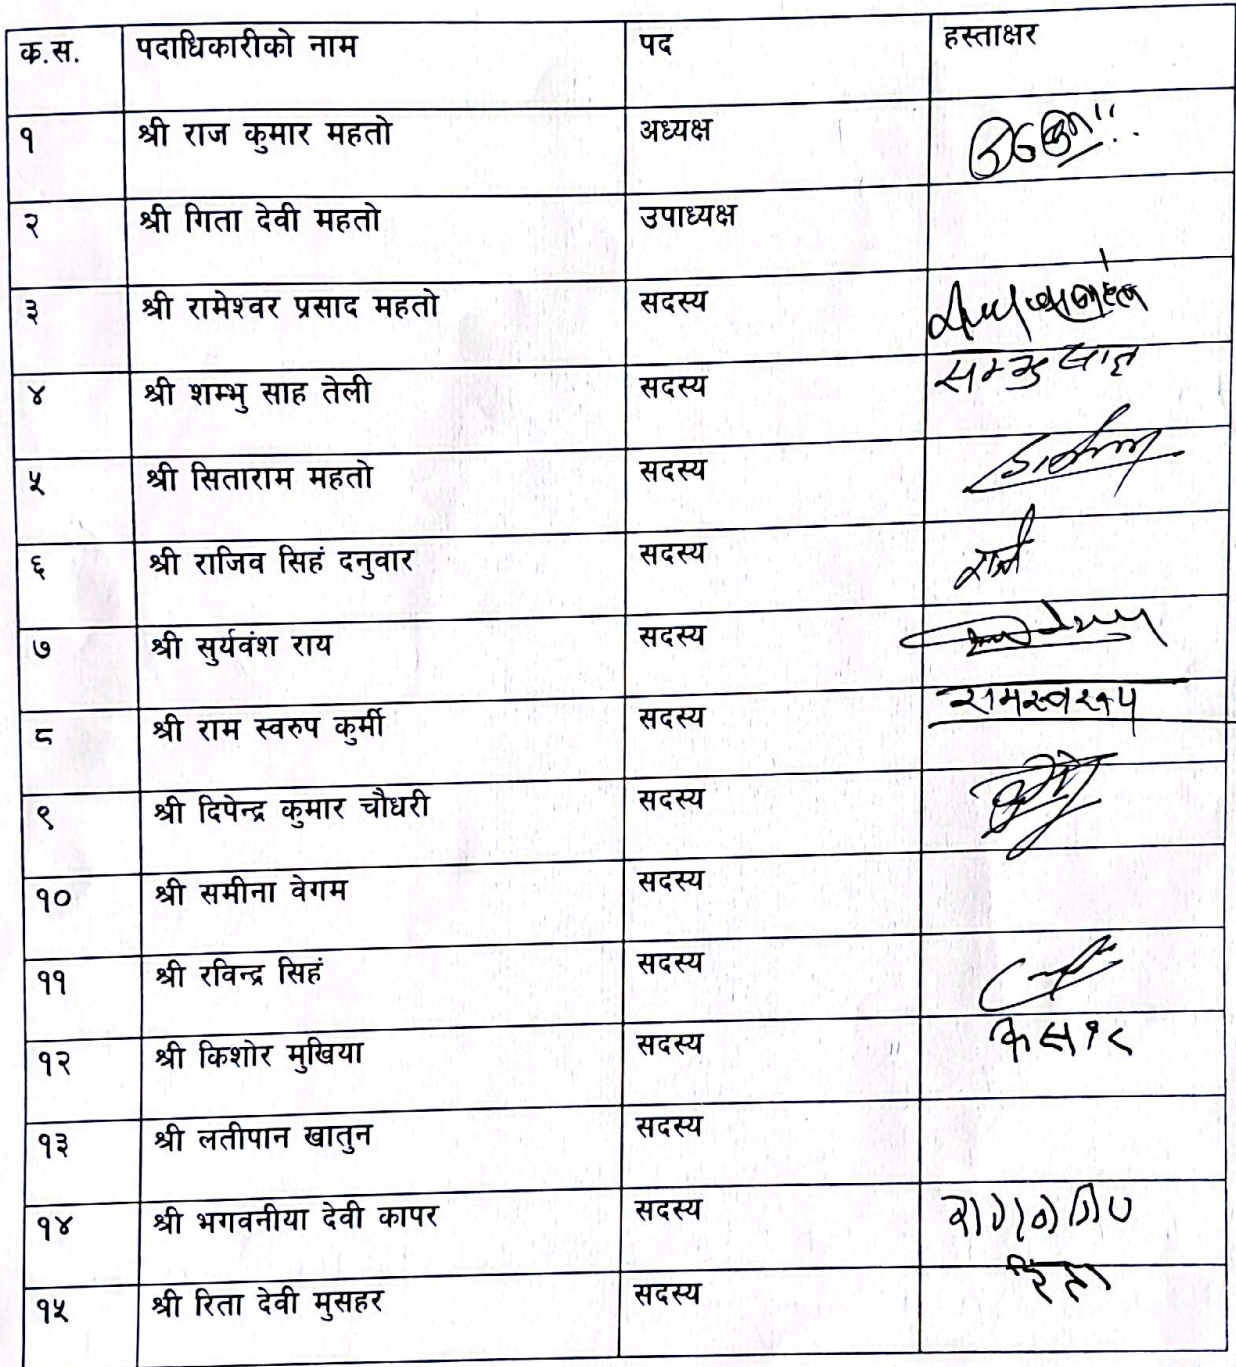 क.स. पदाधिकारीको नाम पद हस्ताक्षर
१ श्री राज कुमार महतो अध्यक्ष
२ श्री गिता देवी महतो उपाध्यक्ष
३ श्री रामेश्वर प्रसाद महतो सदस्य
४ श्री शम्भु साह तेली सदस्य
५ श्री सिताराम महतो सदस्य
६ श्री राजिव सिहं दनुवार सदस्य
७ श्री सुर्यवंश राय सदस्य
८ श्री राम स्वरुप कुर्मी सदस्य रामस्वरूप
९ श्री दिपेन्द्र कुमार चौधरी सदस्य
१० श्री समीना वेगम सदस्य
११ श्री रविन्द्र सिहं सदस्य
१२ श्री किशोर मुखिया सदस्य
१३ श्री लतीपान खातुन सदस्य
१४ श्री भगवनीया देवी कापर सदस्य
१५ श्री रिता देवी मुसहर सदस्य